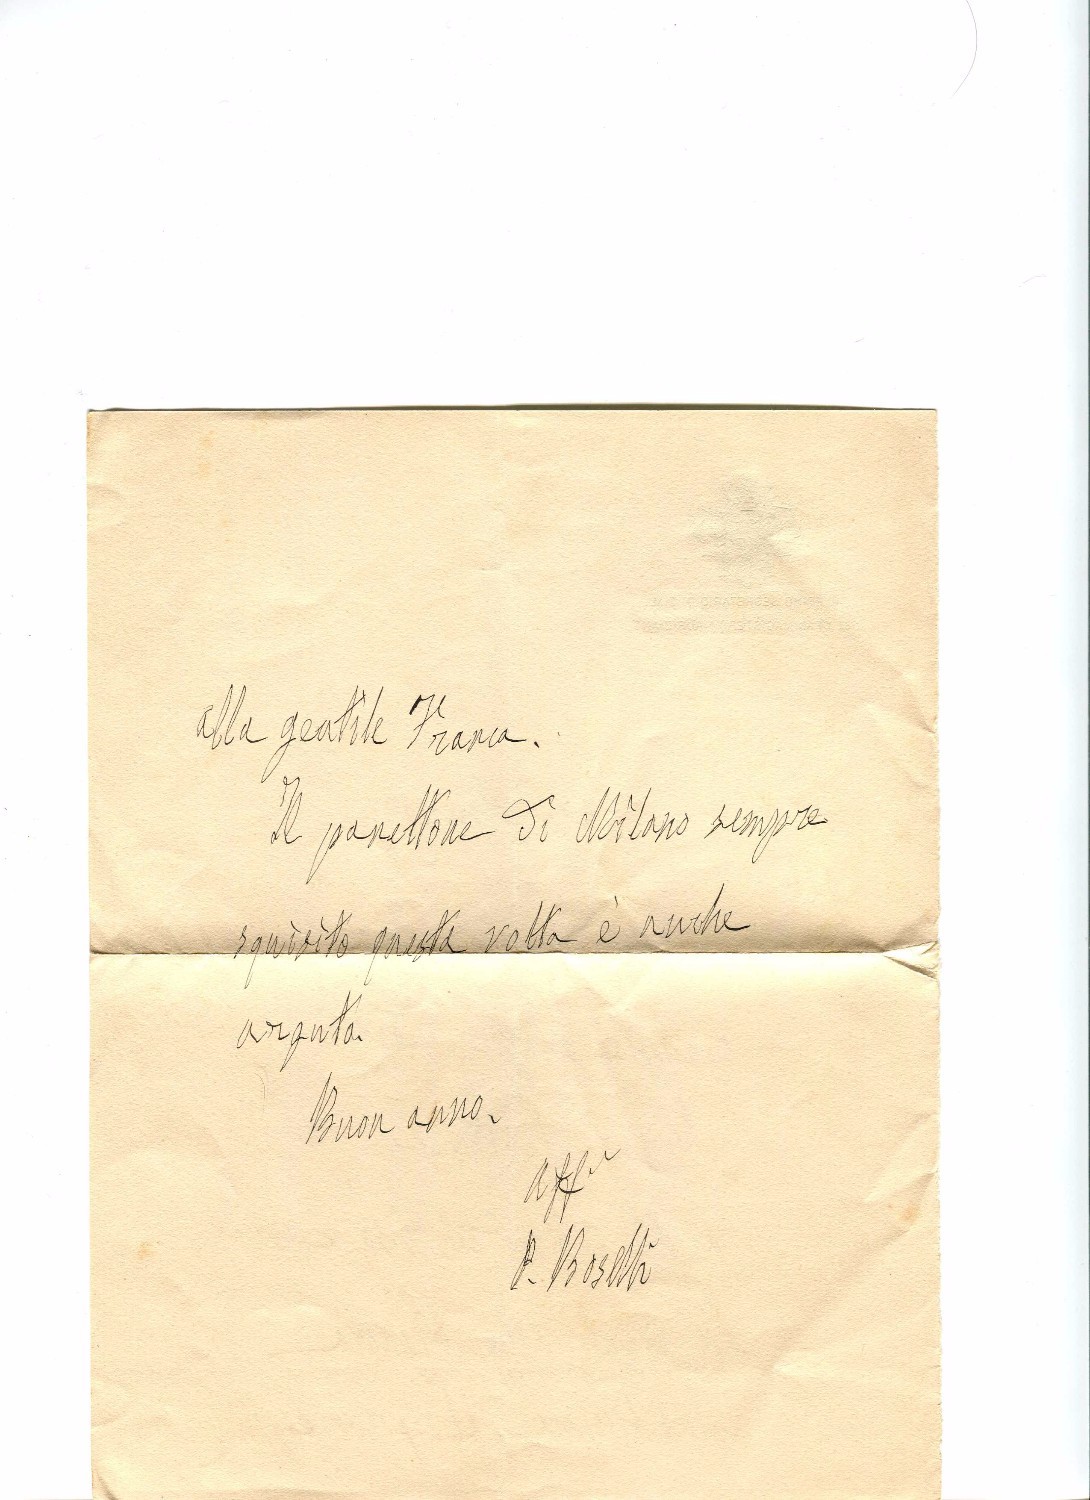 alla gentile Franca.
Il panettone di Milano sempre
squisito questa volta è anche
arguto.
Buon anno.
aff
P. Boselli